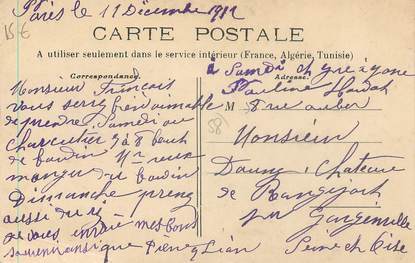 Paris le 11 Décembre 1912
15€
CARTE POSTALE
A utiliser seulement dans le service intérieur (France, Algérie, Tunisie)
Correspondance.
Adresse.
Monsieur Francois
vous serez bien aimable
de prendre Samedi au
charcutier 7 à 8 bouts
de boudin Mr veux
manger du boudin
Dimanche prenez
aussi du
de vous envoie mes bons
souvenir ainsi que
à Samedi
Pauline
M 8 rue auber
58
Monsieur
Chateau
de Rangiport
par Gargenville
Seine et Oise